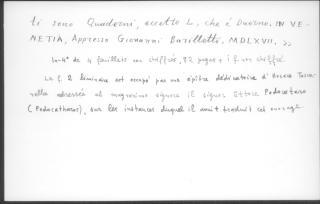 ti sono Quaderni, eccetto L, che è Duerno. IN VE-
NETIA, Appresso Giovanni Bariletto, MDLXVII, >>
In-4° de 4 feuillets non chiffrés, 82 pages + 1 f. non chiffré.
Le f. 2 liminaire est occupé par une épître dédicatoire d'Horatio Tosca-
nella adressée al magnanimo signore il signor Ettore Podocataro
(Podocatharos), sur les instances duquel il avait traduit cet ouvrage